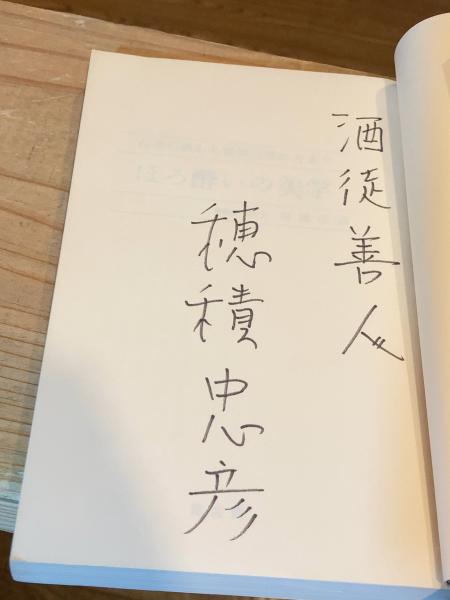 酒徒善人
穂積忠彦
ほろ酔いの美学